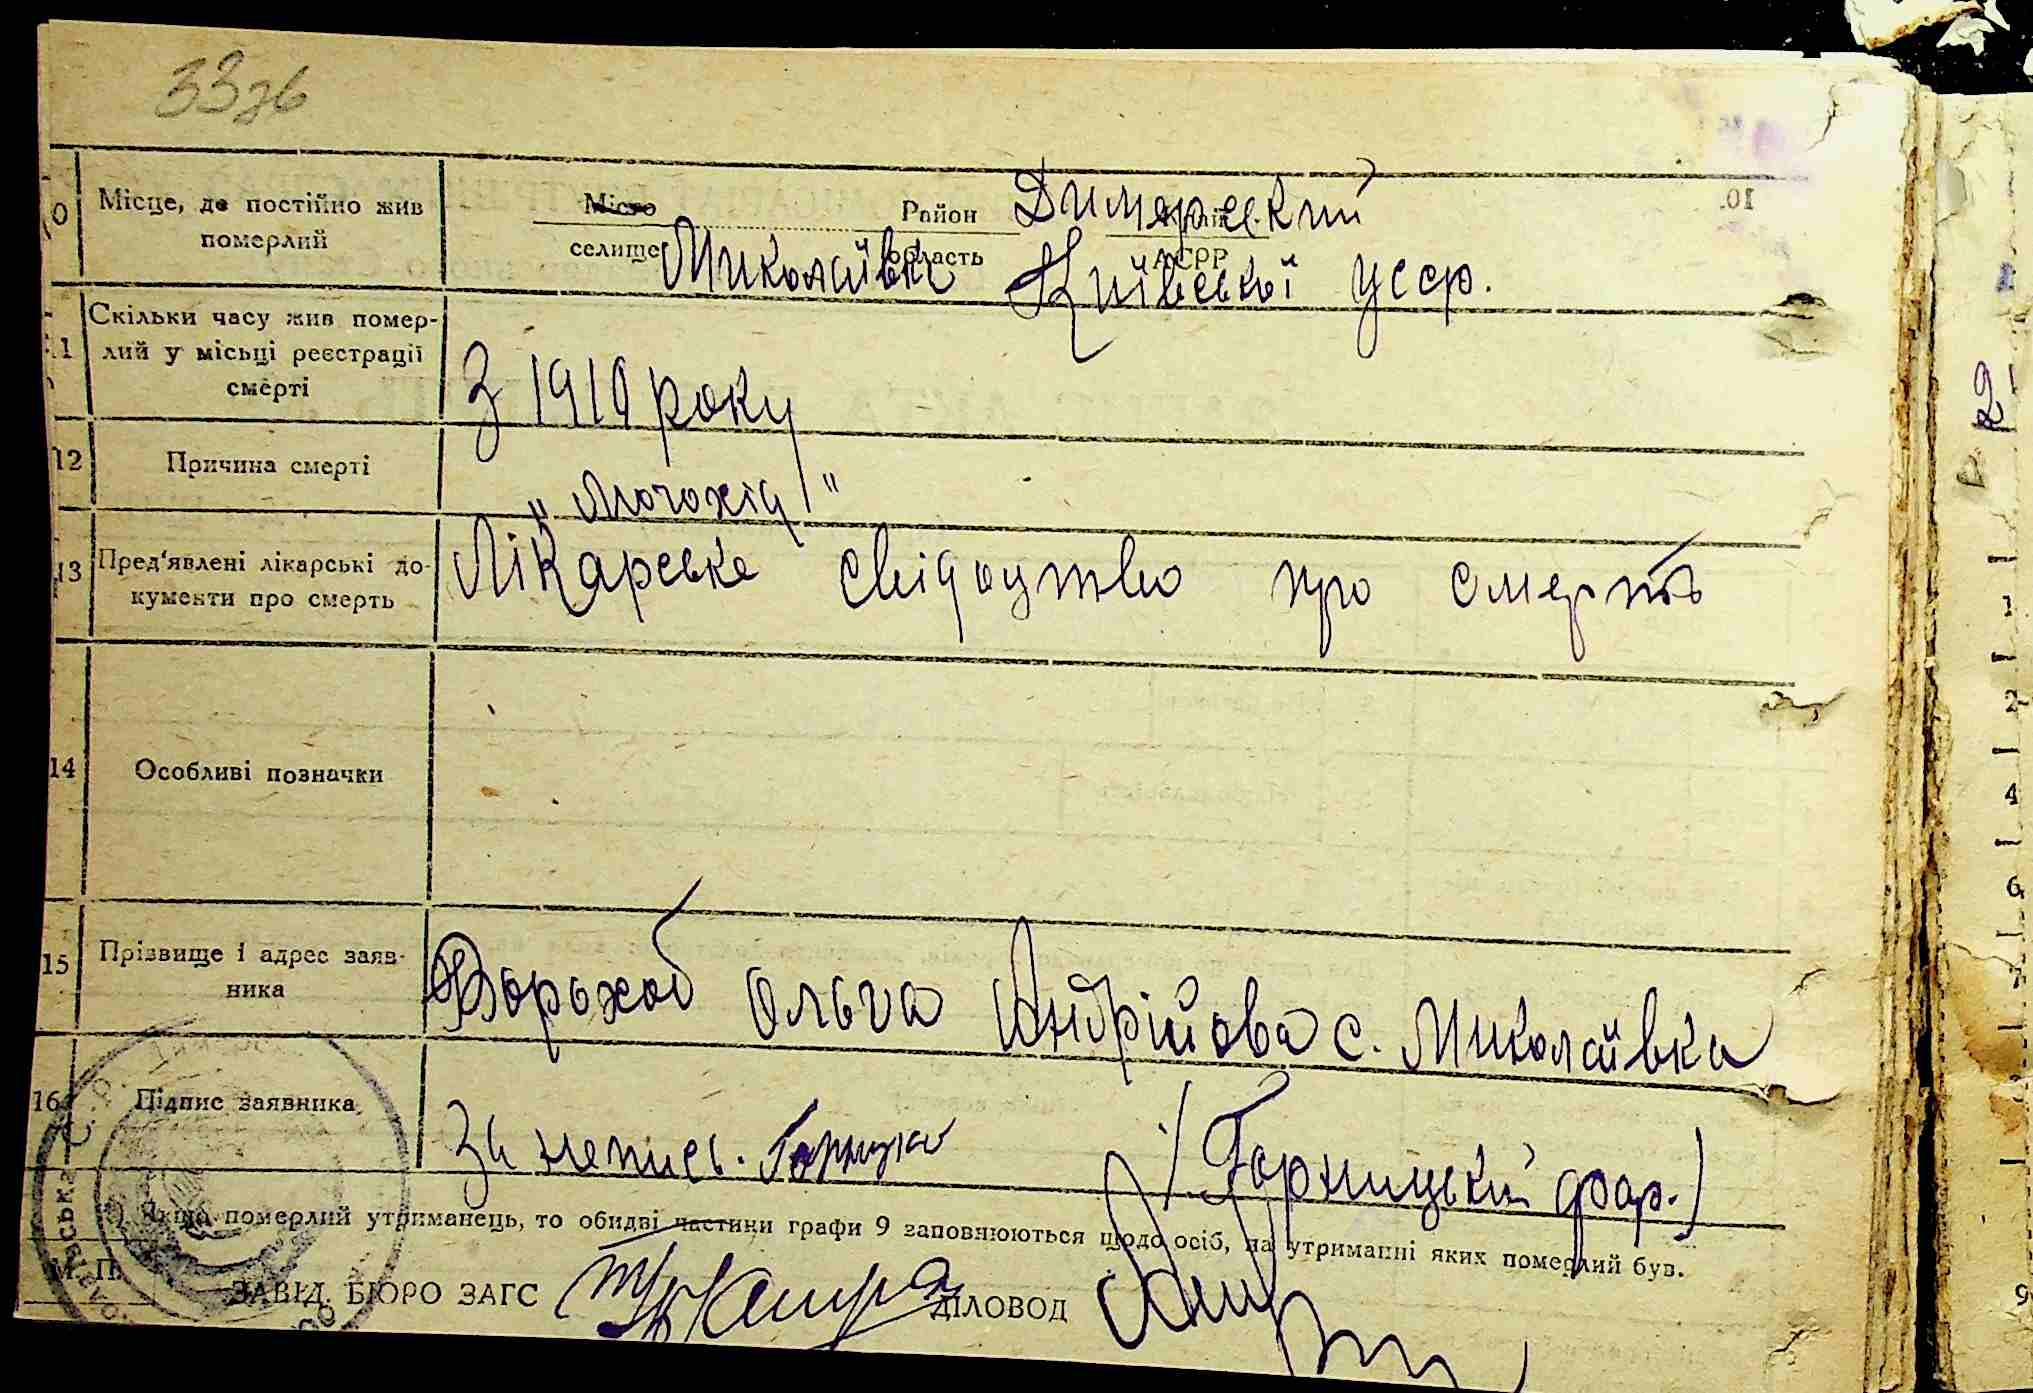 33зв
10 Місце, де постійно жив померлий
Місто Район Димерський Край
селище Миколаївка область Київської АСРР УССР.
11 Скільки часу жив померлий у місьці реєстрації смерті
З 1919 року
12 Причина смерті
13 Пред'явлені лікарські документи про смерть
Лікарське свідоцтво про смерть
14 Особливі позначки
15 Прізвище і адрес заявника
Ворохоб Ольга Андрійова с. Миколаївка
16 Підпис заявника
За непись. (Горницький фар.)
Якщо померлий утриманець, то обидві частини графи 9 заповнюються щодо осіб, на утриманні яких померлий був.
М. П.
ЗАВІД. БЮРО ЗАГС ДІЛОВОД